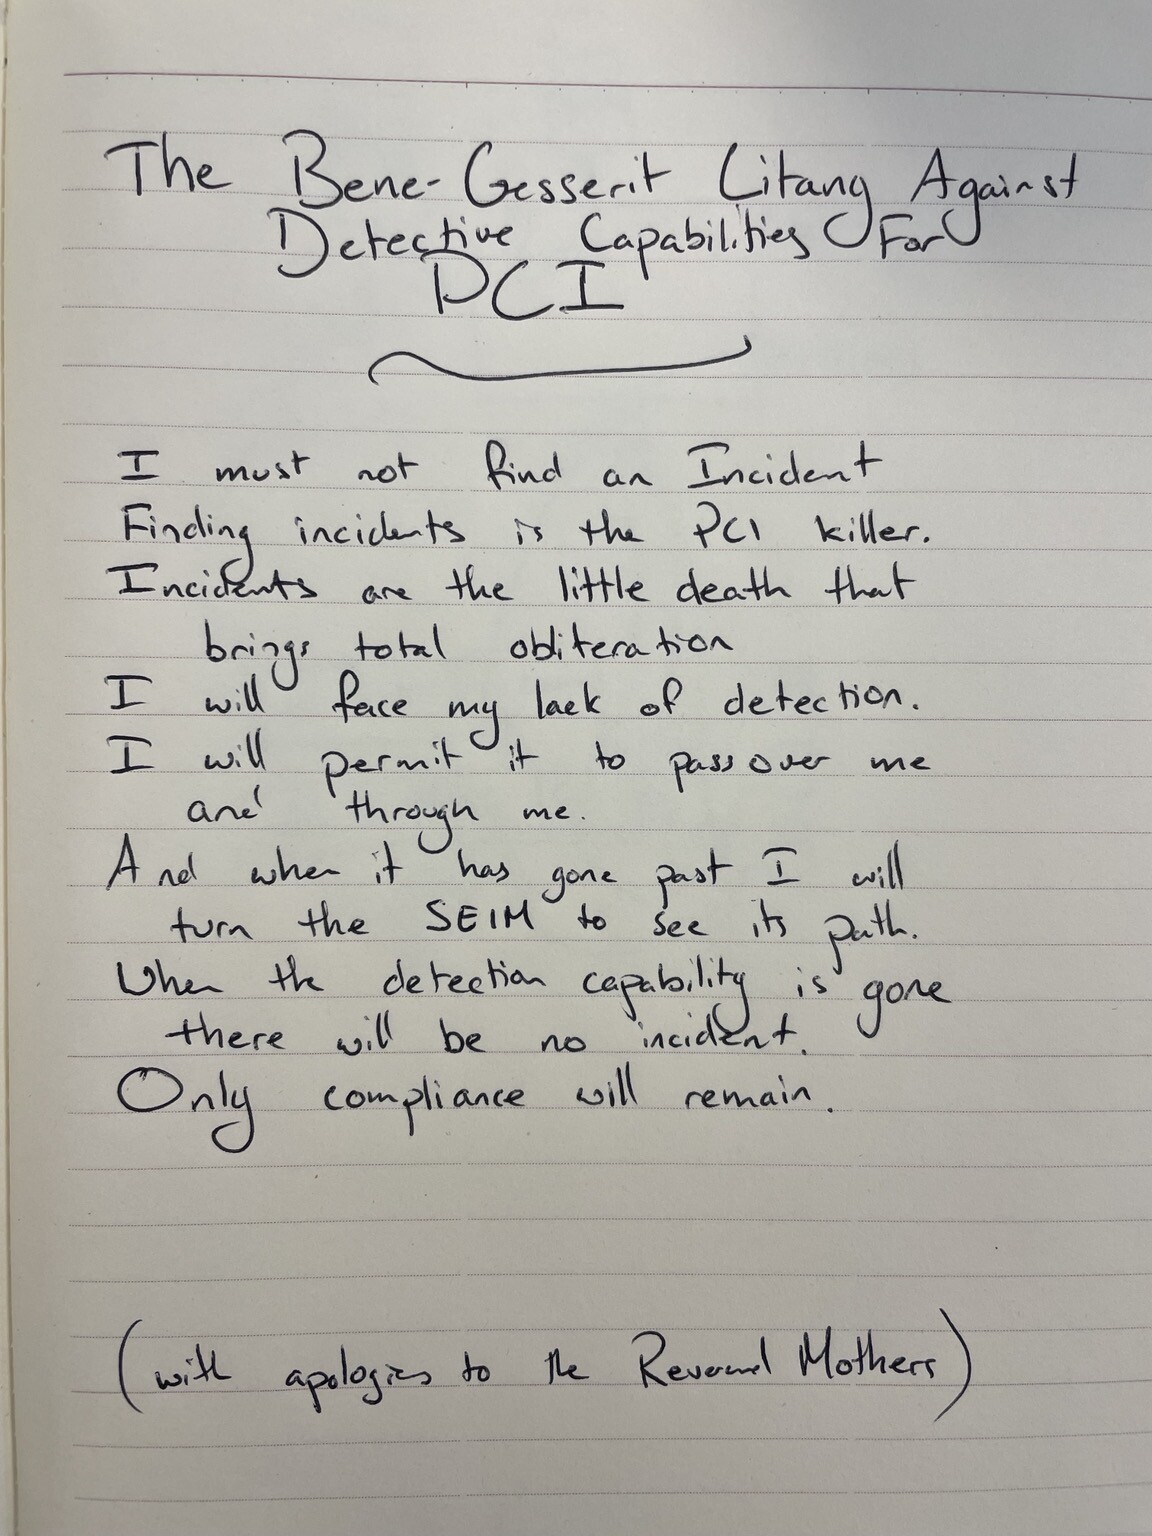 The Bene-Gesserit Litany Against
Detective Capabilities For
PCI
I must not find an Incident
Finding incidents is the PCI killer.
Incidents are the little death that
brings total obliteration
I will face my lack of detection.
I will permit it to pass over me
and through me.
And when it has gone past I will
turn the SEIM to see its path.
When the detection capability is gone
there will be no incident.
Only compliance will remain.
(with apologies to the Reverend Mothers)